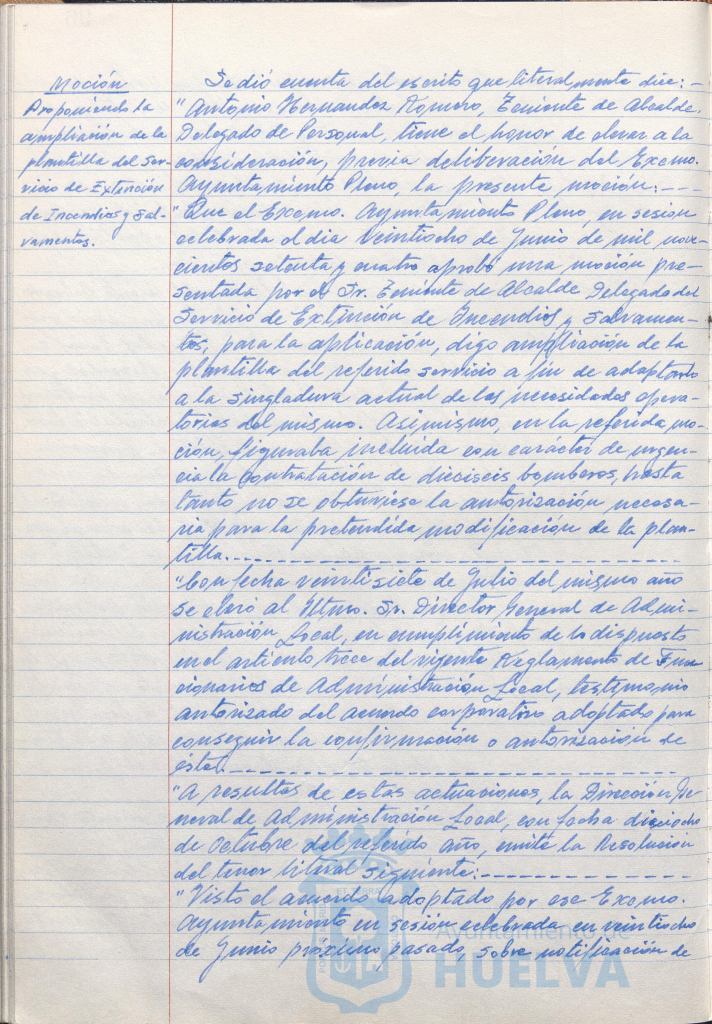 Moción
Proponiendo la
ampliación de la
plantilla del Ser-
vicio de Extinción
de Incendios y Sal-
vamentos.
Se dió cuenta del escrito que literalmente dice: -
"Antonio Hernandez Romero, Teniente de Alcalde,
Delegado de Personal, tiene el honor de elevar a la
consideración, previa deliberación del Excmo.
Ayuntamiento Pleno, la presente moción: ---
"Que el Excmo. Ayuntamiento Pleno, en sesión
celebrada el dia veintiocho de Junio de mil nove-
cientos setenta y cuatro aprobó una moción pre-
sentada por el Sr. Teniente de Alcalde Delegado del
Servicio de Extinción de Incendios y Salvamen-
tos, para la aplicación, digo ampliación de la
plantilla del referido servicio a fin de adaptarlo
a la singladura actual de las necesidades opera-
torias del mismo. Asimismo, en la referida mo-
ción, figuraba incluida con carácter de urgen-
cia la contratación de dieciseis bomberos, hasta
tanto no se obtuviese la autorización necesa-
ria para la pretendida modificación de la plan-
tilla.
"Con fecha veintisiete de Julio del mismo año
se elevó al Iltmo. Sr. Director General de Admi-
nistración Local, en cumplimiento de lo dispuesto
en el artículo trece del vigente Reglamento de Fun-
cionarios de Administración Local, testimonio
autorizado del acuerdo corporativo adoptado para
conseguir la confirmación o autorización de
éste.
"A resultas de estas actuaciones, la Dirección Ge-
neral de Administración Local, con fecha dieciocho
de Octubre del referido año, emite la Resolución
del tenor literal siguiente:
"Visto el acuerdo adoptado por ese Excmo.
Ayuntamiento en sesión celebrada en veintiocho
de Junio próximo pasado, sobre notificación de
Ayuntamiento de
HUELVA